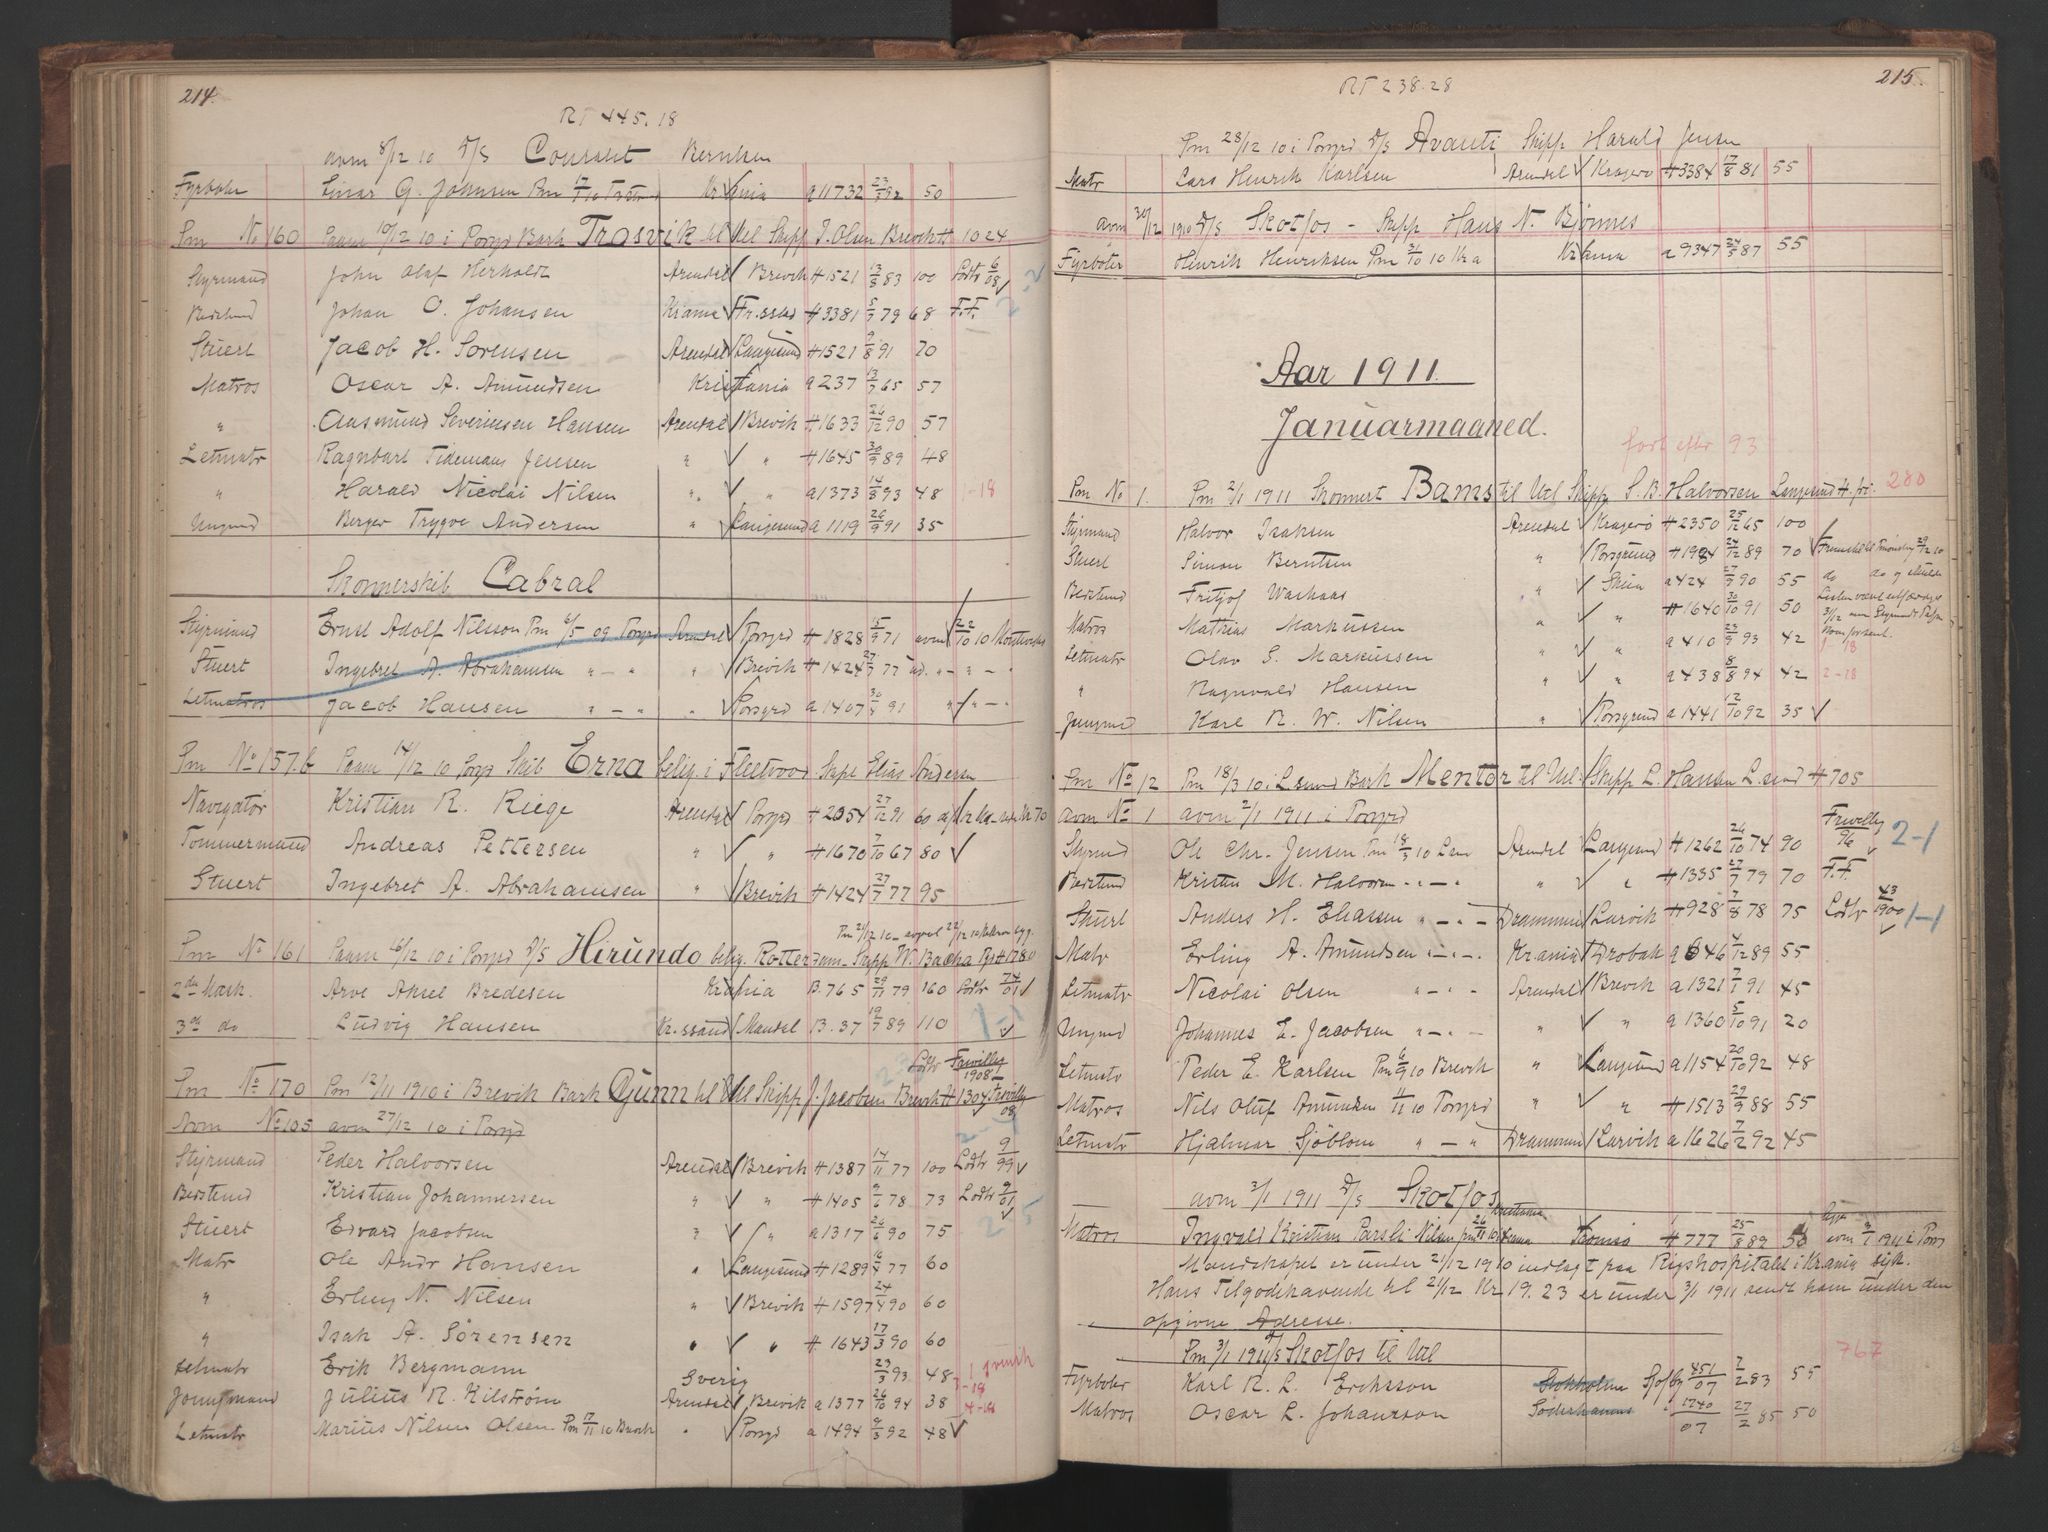 214.
RT 445.18
avm 8/12 10 D/S Courant Berntsen
Fyrbøter Einar G. Johnsen Pm 17/ 10 Kr ania a 11732 23/3 92 50
Pm No 160 Paam 10/12 10 i Porsgd Bark Trosvik til Utl Skipp J. Olsen Brevik H 1024
Styrmand John Olaf Herholdt Arendal Brevik H 1521 13/8 83 100 Lodtr 6/08
Bestmd Johan O. Johansen Krania Fr.stad H 3381 5/7 79 68 F.F.
Stuert Jacob H. Sørensen Arendal Langesund H 1521 9/8 91 70
Matros Oscar A. Amundsen Kristiania a 237 13/7 65 57
" Aasmund Severinsen Hansen Arendal Brevik H 1633 26/12 90 57
Letmatr Ragnvart Tidemans Jensen " " H 1645 30/9 89 48
" Harald Nicolai Nilsen " " a 1373 14/8 93 48 1-18
Ungmd Berger Trygve Andersen " Langesund a 1119 26/9 91 35
Skonnerskib Cabral
Styrmand Ernst Adolf Nilsson Pm 6/5 09 Porsgd Arendal Porsgrd H 1828 15/9 71 avm 22/10 10
Stuert Ingebret A. Abrahamsen " - " " Brevik H 1424 27/7 77 ad. " - " - "
Letmatros Jacob Hansen " - " " Porsgrd a 1407 30/4 91 " " - "
Pm No 157.b Paam 14/12 10 Porsgd Skib Erna belig. i Fleetvood Skipr Elias Andersen
Navigatør Kristian R. Riege Arendal Porsgd H 2054 27/12 91 60
Tømmermand Andreas Pettersen " " H 1670 7/10 67 80
Stuert Ingebret A. Abrahamsen " Brevik H 1424 27/7 77 95
Pm 21/12 10
Pm No 161 Paam 16/12 10 i Porsgd D/S Hirundo belig. Rotterdam Skipp W. Bache Pgr H 1780
2den Mask. Arve Aksel Bredesen Krania B. 765 29/11 79 160 Lodtr 74/01
3de do Ludvig Hansen Kr.ssand Mandal B. 37 19/7 89 110 1-1
Lodtr Frivillig 1908
Pm No 170 Pm 12/11 1910 i Brevik Bark Gunn til Utl Skipp J. Jacobsen Brevik H 1304 Frivillig 08
Avm No 105 avm 27/12 10 i Porsgd
Styrmand Peder Halvorsen Arendal Brevik H 1387 14/11 77 100 Lodtr 9/99
Bestmd Kristian Johannessen " " H 1405 9/6 78 73 Lodtr 9/01
Stuert Edvard Jacobsen " " a 1317 26/6 90 75 2-5
Matr Ole Andr Hansen " Langesund H 1289 16/4 77 60
" Erling N. Nilsen " Brevik H 1597 24/4 90 60
" Isak A. Sørensen " " H 1643 17/3 90 60
Letmatr Erik Bergmann Sverig 23/3 93 48
Jungmand Julius R. Kilstrøm Arendal Brevik a 1377 26/10 94 38
Letmatr Marius Nilsen Olsen Pm 17/11 10 Brevik " Porsgd a 1494 9/3 92 48
215.
RT 238.28
Pm 28/12 10 i Porsgrd D/S Avanti Skipp Harald Jensen
Matr Lars Henrik Karlsen Arendal Kragerø H 3384 17/8 81 55
avm 30/12 1910 D/S Skotfos - Skipp Hans N. Bjønnes
Fyrbøter Henrik Henriksen Pm 31/10 10 Kra Krania a 9347 24/5 87 55
Aar 1911.
Januarmaaned.
fort efter 93
Pm No 1. Pm 2/1 1911 Skonnert Bams til Utl Skipp S. B. Halvorsen Langesund H. fri. 280
Styrmand Halvor Isaksen Arendal Kragerø H 2350 25/12 65 100
Stuert Simon Berntsen " Porsgrund H 1924 24/12 89 70
Bestmd Fritjof Warhaas " Skien a 424 27/9 90 55
Matros Mathias Markussen " " H 1640 30/10 91 50
Letmatr Olav S. Markussen " " a 410 23/9 93 42 1-18
" Ragnvald Hansen " " a 438 8/8 94 42 2-18
Jungmd Karl R. W. Nilsen " Porsgrund a 1441 12/10 92 35
Pm No 12 Pm 18/3 10 i L.sund Bark Mentor til Utl Skipp L. Hansen L.sund H 705
avm No 1 avm 2/1 1911 i Porsgrd
Styrmd Ole Chr. Jensen Pm 18/3 10 L.sun Arendal Langesund H 1262 26/10 74 90 Frivillig 96 2-1
Bestmd Kristen M. Halvorsen " - " " " H 1335 27/7 79 70 F.F.
Stuert Anders H. Eliassen " - " Drammen Larvik H 928 7/8 78 75 Lodtr 43/1900 1-1
Matr Erling A. Amundsen " - " Krania Drøbak a 646 4/12 89 55
Letmatr Nicolai Olsen " - " Arendal Brevik a 1321 7/1 91 45
Ungmd Johannes E. Jacobsen " - " " " a 1360 5/10 91 20
Letmatr Peder E. Karlsen Pm 6/9 10 Brevik " Langesund a 1154 20/10 92 48
Matros Nils Oluf Amundsen 11/11 10 Porsgrd " " H 1513 29/9 88 55
Letmatr Hjalmar Sjøblom " - " Drammen Larvik a 1626 7/2 92 45
avm 3/1 1911 D/S Skotfos
Matros Ingvald Kristian Parsli Nilsen pm 26/11 10 Kristiania Tromsø H 777 25/8 89 50 avm 3/1 1911 i Pors
Mandskapet er under 21/12 1910 indlagt paa Rigshospitalet i Krania syk.
Hans Tilgodehavende til 21/12 Kr 19.23 er under 3/1 1911 sendt ham under den
opgivne Adresse.
Pm 3/1 1911 D/S Skotfos til Utl 767
Fyrbøter Karl R. L. Eriksson Stokholm Sjøfbg 451/07 7/2 83 55
Matros Oscar L. Johansson Søderhamn " 1740/07 27/2 85 50